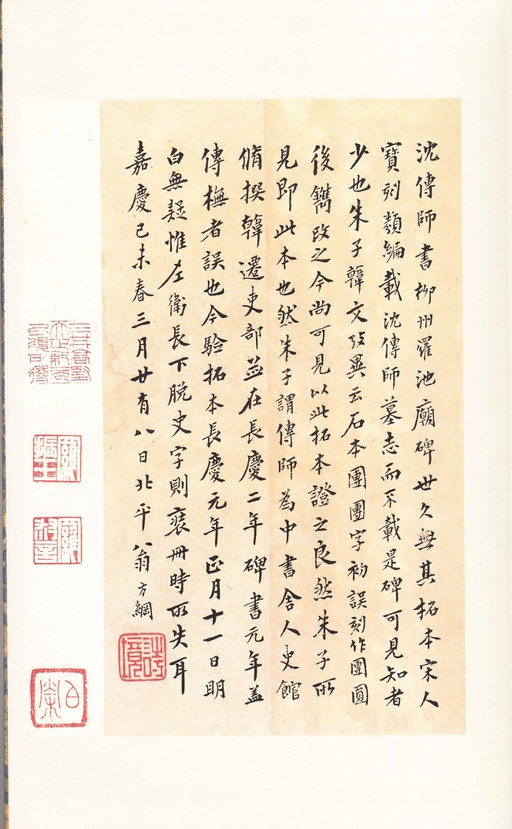 沈傳師書柳州羅池廟碑世久無其拓本宋人
寶刻類編載沈傳師墓志而不載是碑可見知者
少也朱子韓文攷異云石本團團字初誤刻作團圓
後鐫改之今尚可見以此拓本證之良然朱子所
見即此本也然朱子謂傳師為中書舍人史館
脩撰韓遷吏部並在長慶二年碑書元年蓋
傳橅者誤也今驗拓本長慶元年正月十一日明
白無疑惟左衛長下脫史字則冊時所失耳
嘉慶己未春三月廿有八日北平翁方綱
詩境
羅振玉